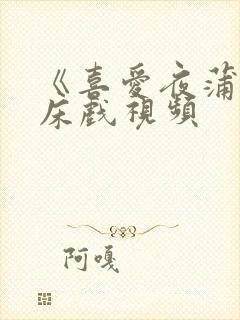 《喜愛夜蒲
床戲視頻
阿嘎